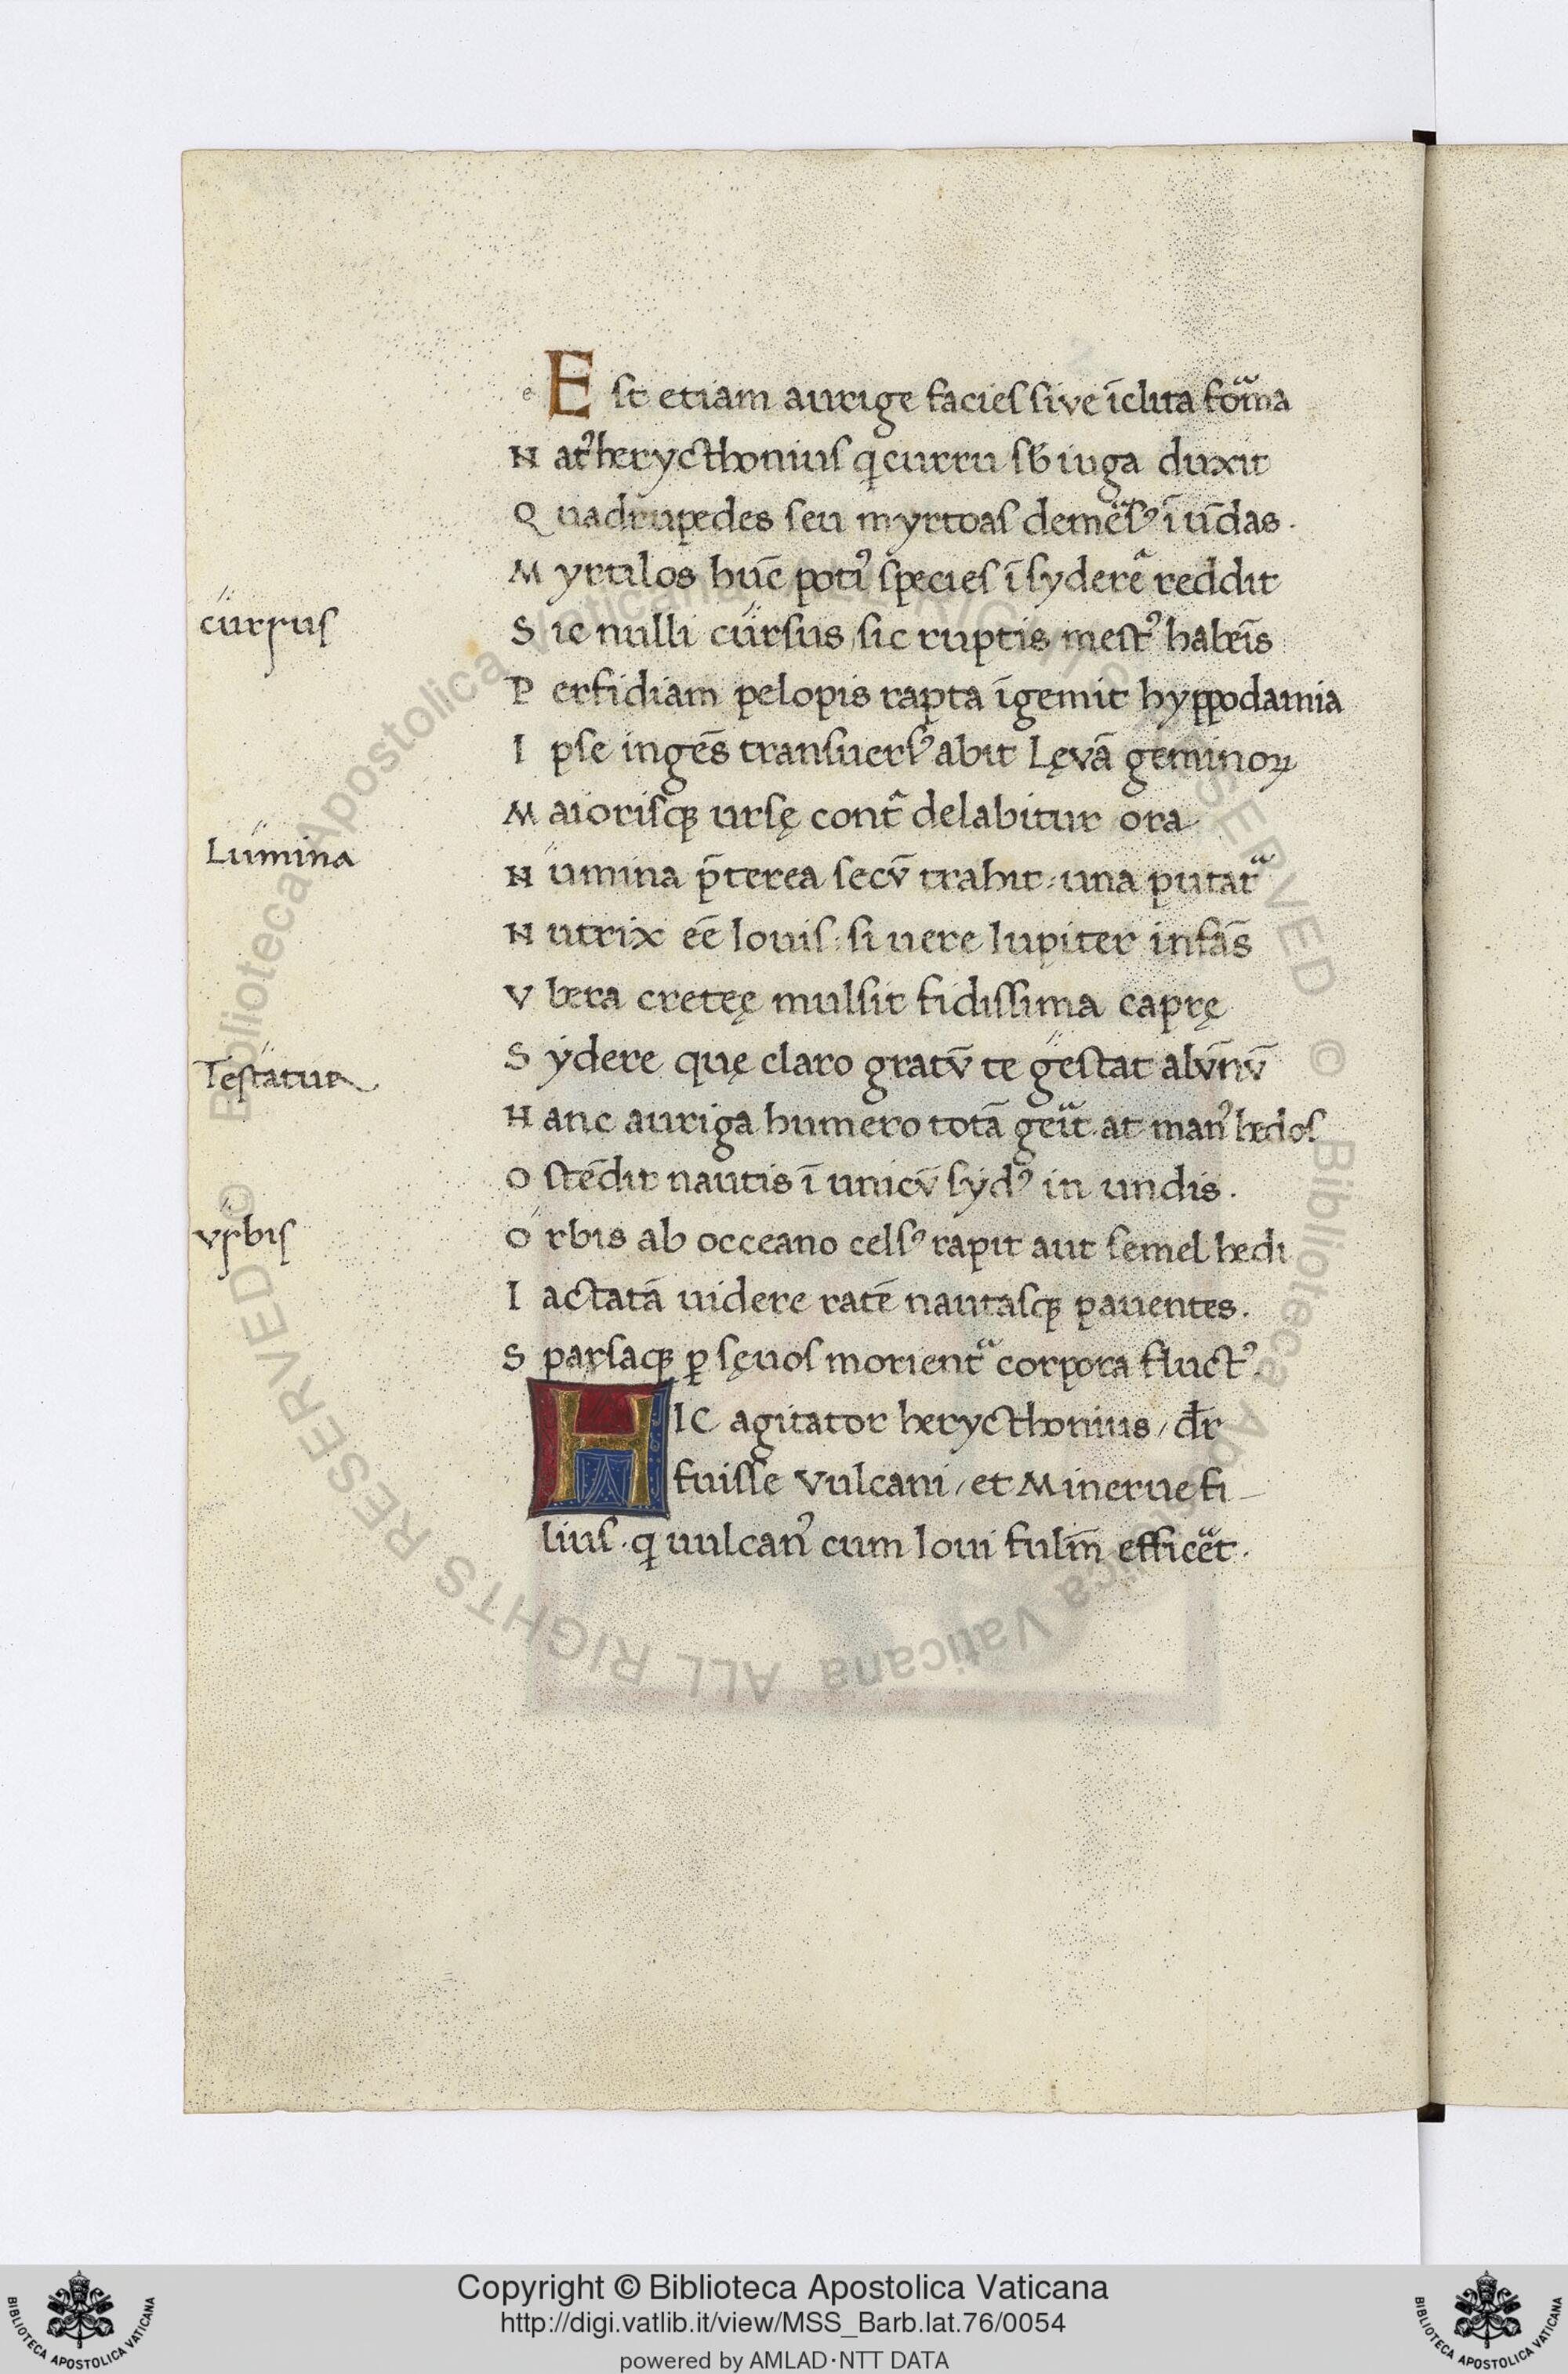 Est etiam aurige facies sive īcluta foᷓma
Natꝰ herycthonius q̇ curru sƀ iuga duxit
Quadrupedes seu myrtoas demēsꝰ ī ūdas.
Myrtilos hūc potiꝰ species ī sydereᷓ reddit
cursus
Sic nulli cursus, sic ruptis mestꝰ habeīs
Perfidiam pelopis rapta īgemit hyppodamia
Ipse ingēs transuersꝰ abit Lęvā geminoꝝ
Maiorisqꝫ ursę contᷓ delabitur ora
Lumina
Numina p̄terea secū trahit: una putatᷓ
Nutrix eē Iouis: si uere Iupiter infās
Vbera creteę mulsit fidissima caprę
Testatur
Sydere quę claro gratū te gestat alūnū
Hanc auriga humero totā geīt. at manꝰ hedos
Ostēdit nautis ī unicū sydꝰ in undis.
vrbis
Orbis ab occeano celsꝰ rapit aut semel hedi
Iactatā uidere ratē nautasqꝫ pauentes.
Sparsaqꝫ ꝑ sęuos morientᷓ corpora fluctꝰ.
HIC agitator herycthonius, dr̄
fuisse Vulcani, et Minerue fi-
lius. q uulcanꝰ cum Ioui fulm̄ efficēt.
Copyright © Biblioteca Apostolica Vaticana
http://digi.vatlib.it/view/MSS_Barb.lat.76/0054
powered by AMLAD·NTT DATA
BIBLIOTECA APOSTOLICA VATICANA
BIBLIOTECA APOSTOLICA VATICANA
© Biblioteca Apostolica Vaticana ALL RIGHTS RESERVED © Biblioteca Apostolica Vaticana ALL RIGHTS RESERVED